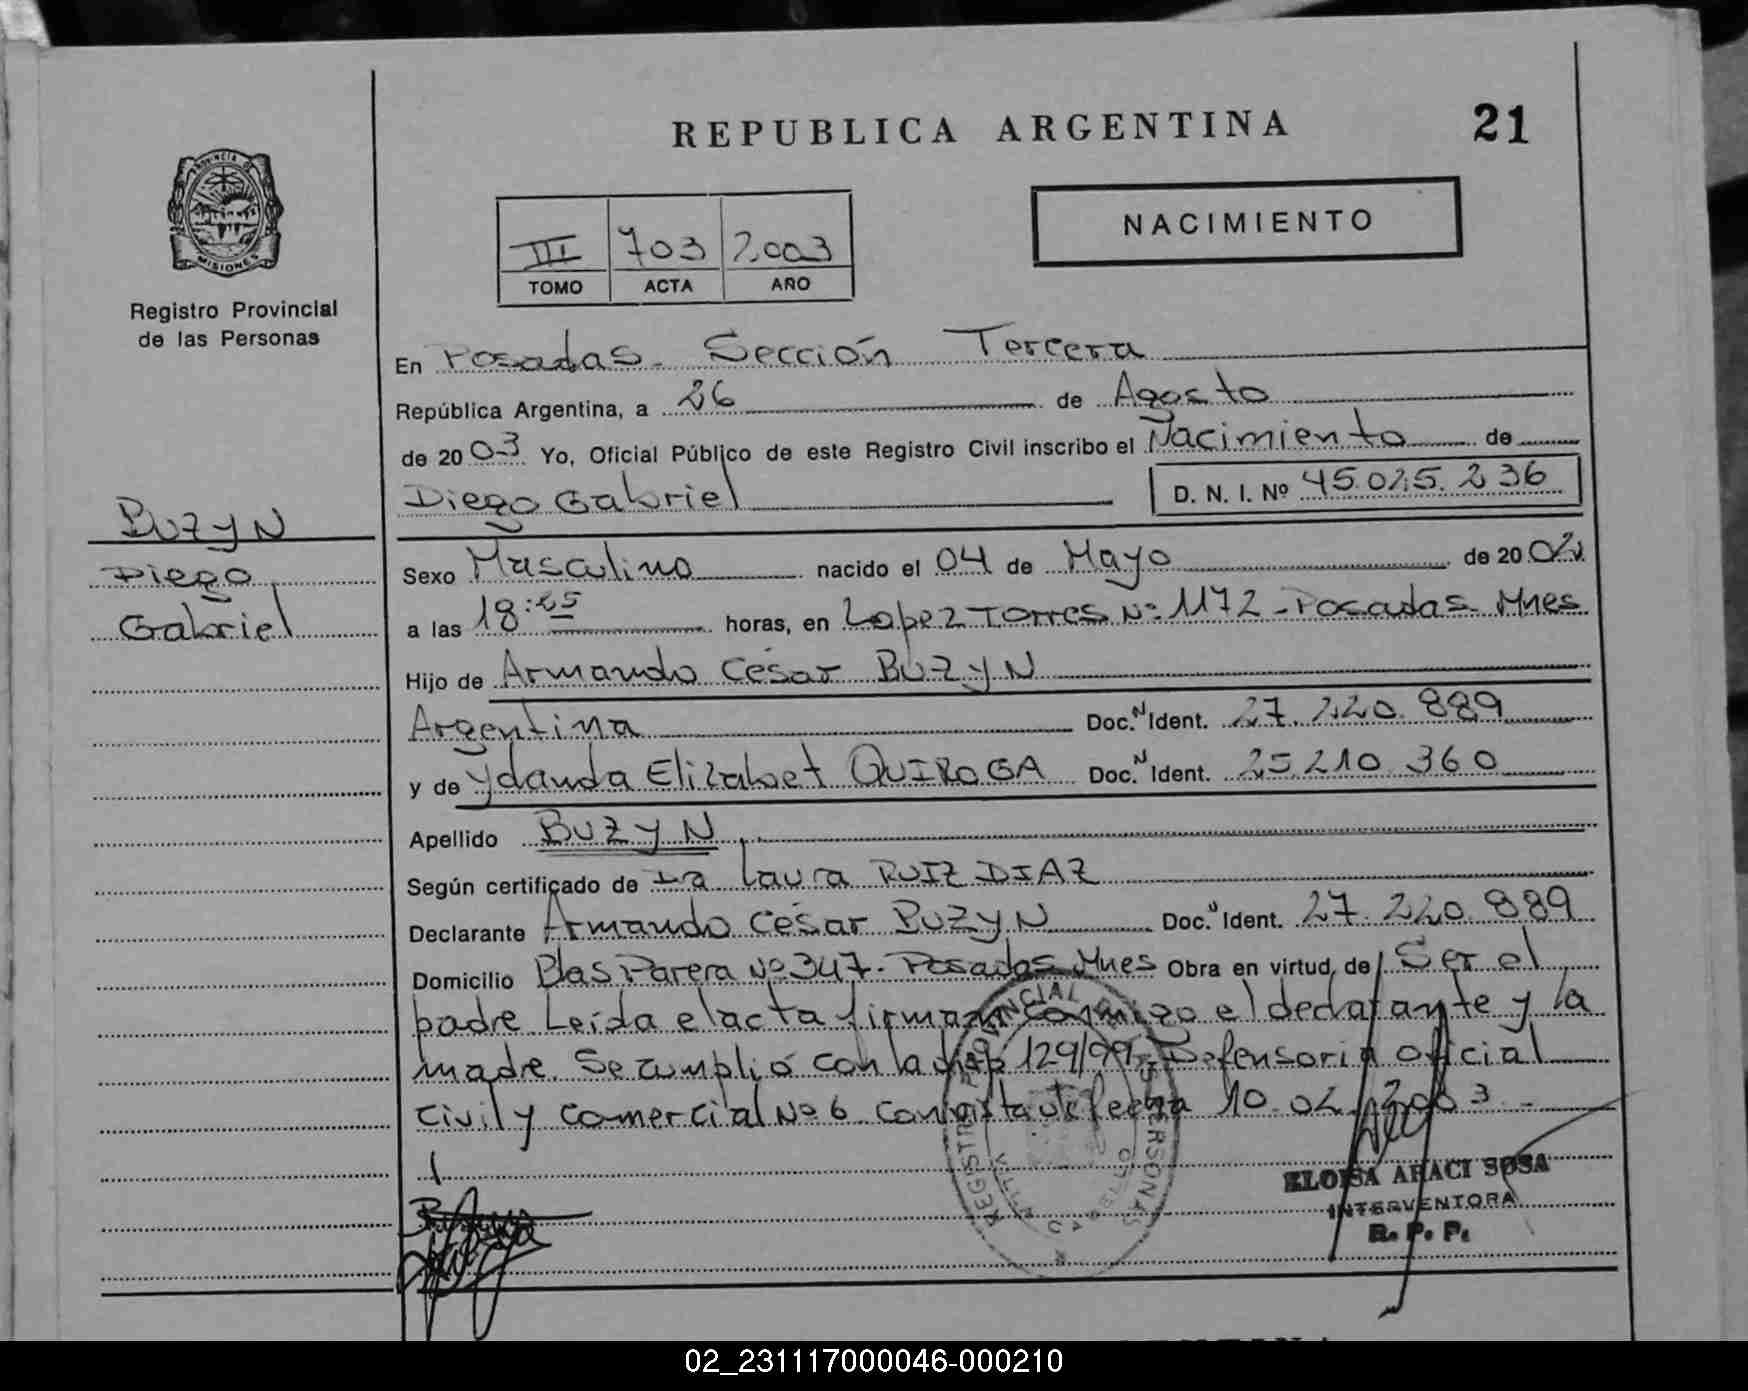 REPUBLICA ARGENTINA
21
PROVINCIA DE
MISIONES
Registro Provincial
de las Personas
III 703 2003
TOMO ACTA AÑO
NACIMIENTO
En Posadas. Sección Tercera
República Argentina, a 26 de Agosto
de 2003 Yo, Oficial Público de este Registro Civil inscribo el Nacimiento de
Diego Gabriel D. N. I. Nº 45.025.236
BUZYN
Diego
Gabriel
Sexo Masculino nacido el 04 de Mayo de 2002
a las 18: horas, en Lopez Torres Nº: 1172 - Posadas Mnes
Hijo de Armando César BUZYN
Argentina Doc. N Ident. 27.220.889
y de Ydanda Elizabet QUIROGA Doc. N Ident. 25.210.360
Apellido BUZYN
Según certificado de Laura RUIZ DIAZ
Declarante Armando César BUZYN Doc. N Ident. 27.220.889
Domicilio Blas Parera Nº 347. Posadas Mnes Obra en virtud de Ser el
padre. Leída el acta firman conmigo el declarante y la
madre. Se cumplió con la 129/99. Defensoria oficial
Civil y Comercial Nº 6 Con vista de fecha 10.02.2003.-
ELOISA ARACI SOSA
INTERVENTORA
R. P. P.
02_231117000046-000210